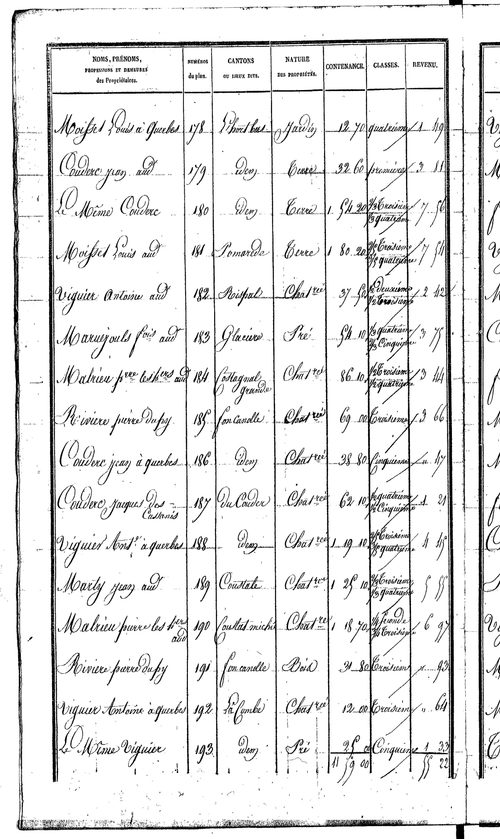 NOMS, PRÉNOMS, PROFESSIONS ET DEMEURES des Propriétaires. NUMÉROS du plan. CANTONS OU LIEUX DITS. NATURE DES PROPRIÉTÉS. CONTENANCE. CLASSES. REVENU.
Moisset Louis à Querbes 178 L'hort bas Jardin 12 70 quatrième 1 49
Couderc jean aud 179 idem Terre 32 60 première 3 11
Le Même Couderc 180 idem Terre 1 54 20 ½ Troisième ½ quatrième 7 56
Moisset Louis aud 181 Pomarède Terre 1 80 20 Troisième quatrième 7 54
Viguier Antoine aud 182 Chat.rée 37 50 ½ deuxième ½ Troisième 2 42
Marujouls f.ois aud 183 Glacière Pré 54 10 quatrième Cinquième 3 75
Malrieu p.rre les hers aud 184 Costagnols grande Chat.rée 86 10 ½ Troisième ½ quatrième 3 44
Rivière pierre Dupuy 185 foncanelle Chat.rée 69 00 Troisième 3 66
Couderc jean à querbes 186 idem Chat.rée 38 80 Cinquième " 47
Couderc Jacques des 187 Du Couder Chat.rée 62 10 quatrième Cinquième 1 21
Viguier Ant.ne à querbes 188 idem Chat.rée 1 19 10 Troisième quatrième 4 45
Marly jean aud 189 Coustate Chat.rée 1 25 10 Troisième quatrième 5 55
Malrieu pierre les hers aud 190 Chat.rée 1 18 70 Troisième 6 97
Rivière pierre Dupuy 191 foncanelle Bois 31 80 Troisième " 93
Viguier Antoine à querbes 192 La Combe Chat.rée 12 00 Troisième " 64
Le Même Viguier 193 idem Pré 25 00 Cinquième 1 33
11 59 00 55 22